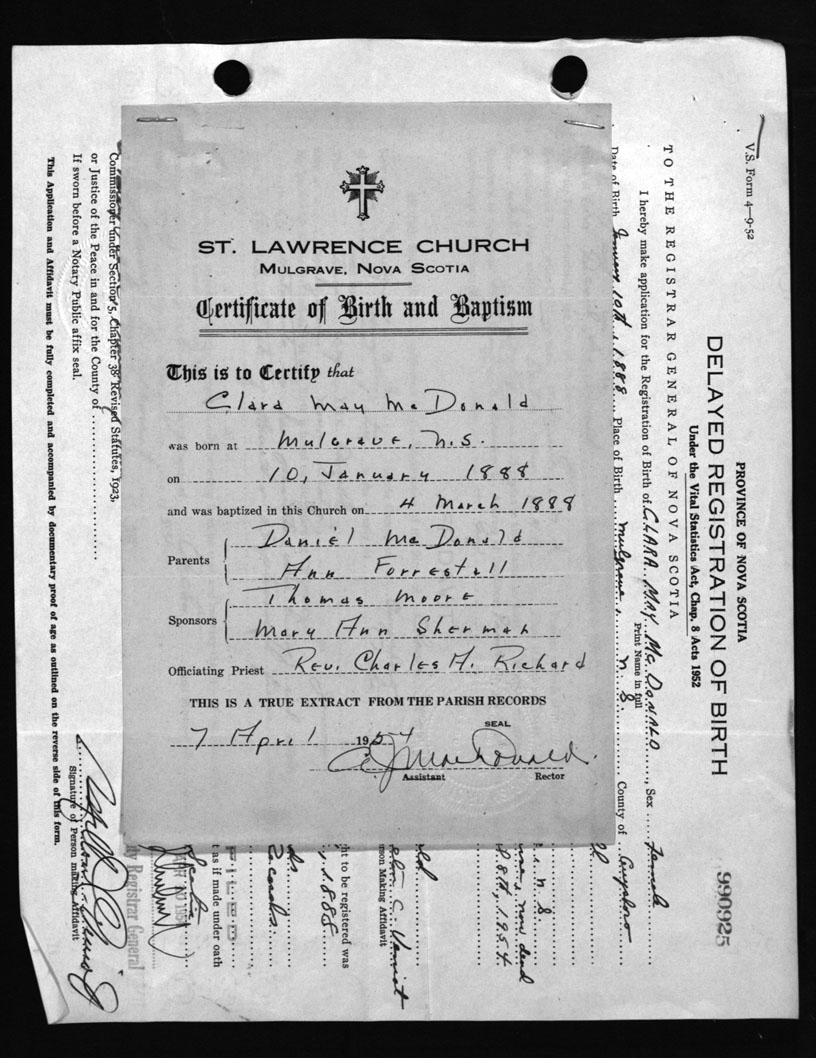 ST. LAWRENCE CHURCH
MULGRAVE, NOVA SCOTIA
Certificate of Birth and Baptism
This is to Certify that
Clara May McDonald
was born at Mulgrave, N.S.
on 10, January 1888
and was baptized in this Church on 4 March 1888
Parents
Daniel McDonald
Ann Forrestall
Sponsors
Thomas Moore
Mary Ann Sherman
Officiating Priest Rev. Charles H. Richard
THIS IS A TRUE EXTRACT FROM THE PARISH RECORDS
7 April 1954
SEAL
MacDonald.
Assistant Rector
V.S. Form 4—9-52
990925
PROVINCE OF NOVA SCOTIA
DELAYED REGISTRATION OF BIRTH
Under the Vital Statistics Act, Chap. 8 Acts 1952
TO THE REGISTRAR GENERAL OF NOVA SCOTIA
I hereby make application for the Registration of Birth of CLARA MAY Mc DONALD, Sex Female
Print Name in full
Date of Birth January 10th, 1888 Place of Birth Mulgrave, N S County of Guysboro
N S
now dead
8th, 1954
rson Making Affidavit
ht to be registered was
1888
t as if made under oath
ty Registrar General
Commissioner under Section 5, Chapter 38 Revised Statutes, 1923,
or Justice of the Peace in and for the County of
If sworn before a Notary Public affix seal.
Signature of Person making Affidavit
This Application and Affidavit must be fully completed and accompanied by documentary proof of age as outlined on the reverse side of this form.